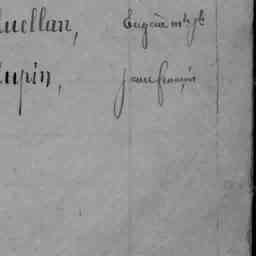 uellan, Eugène
upin, jean françois